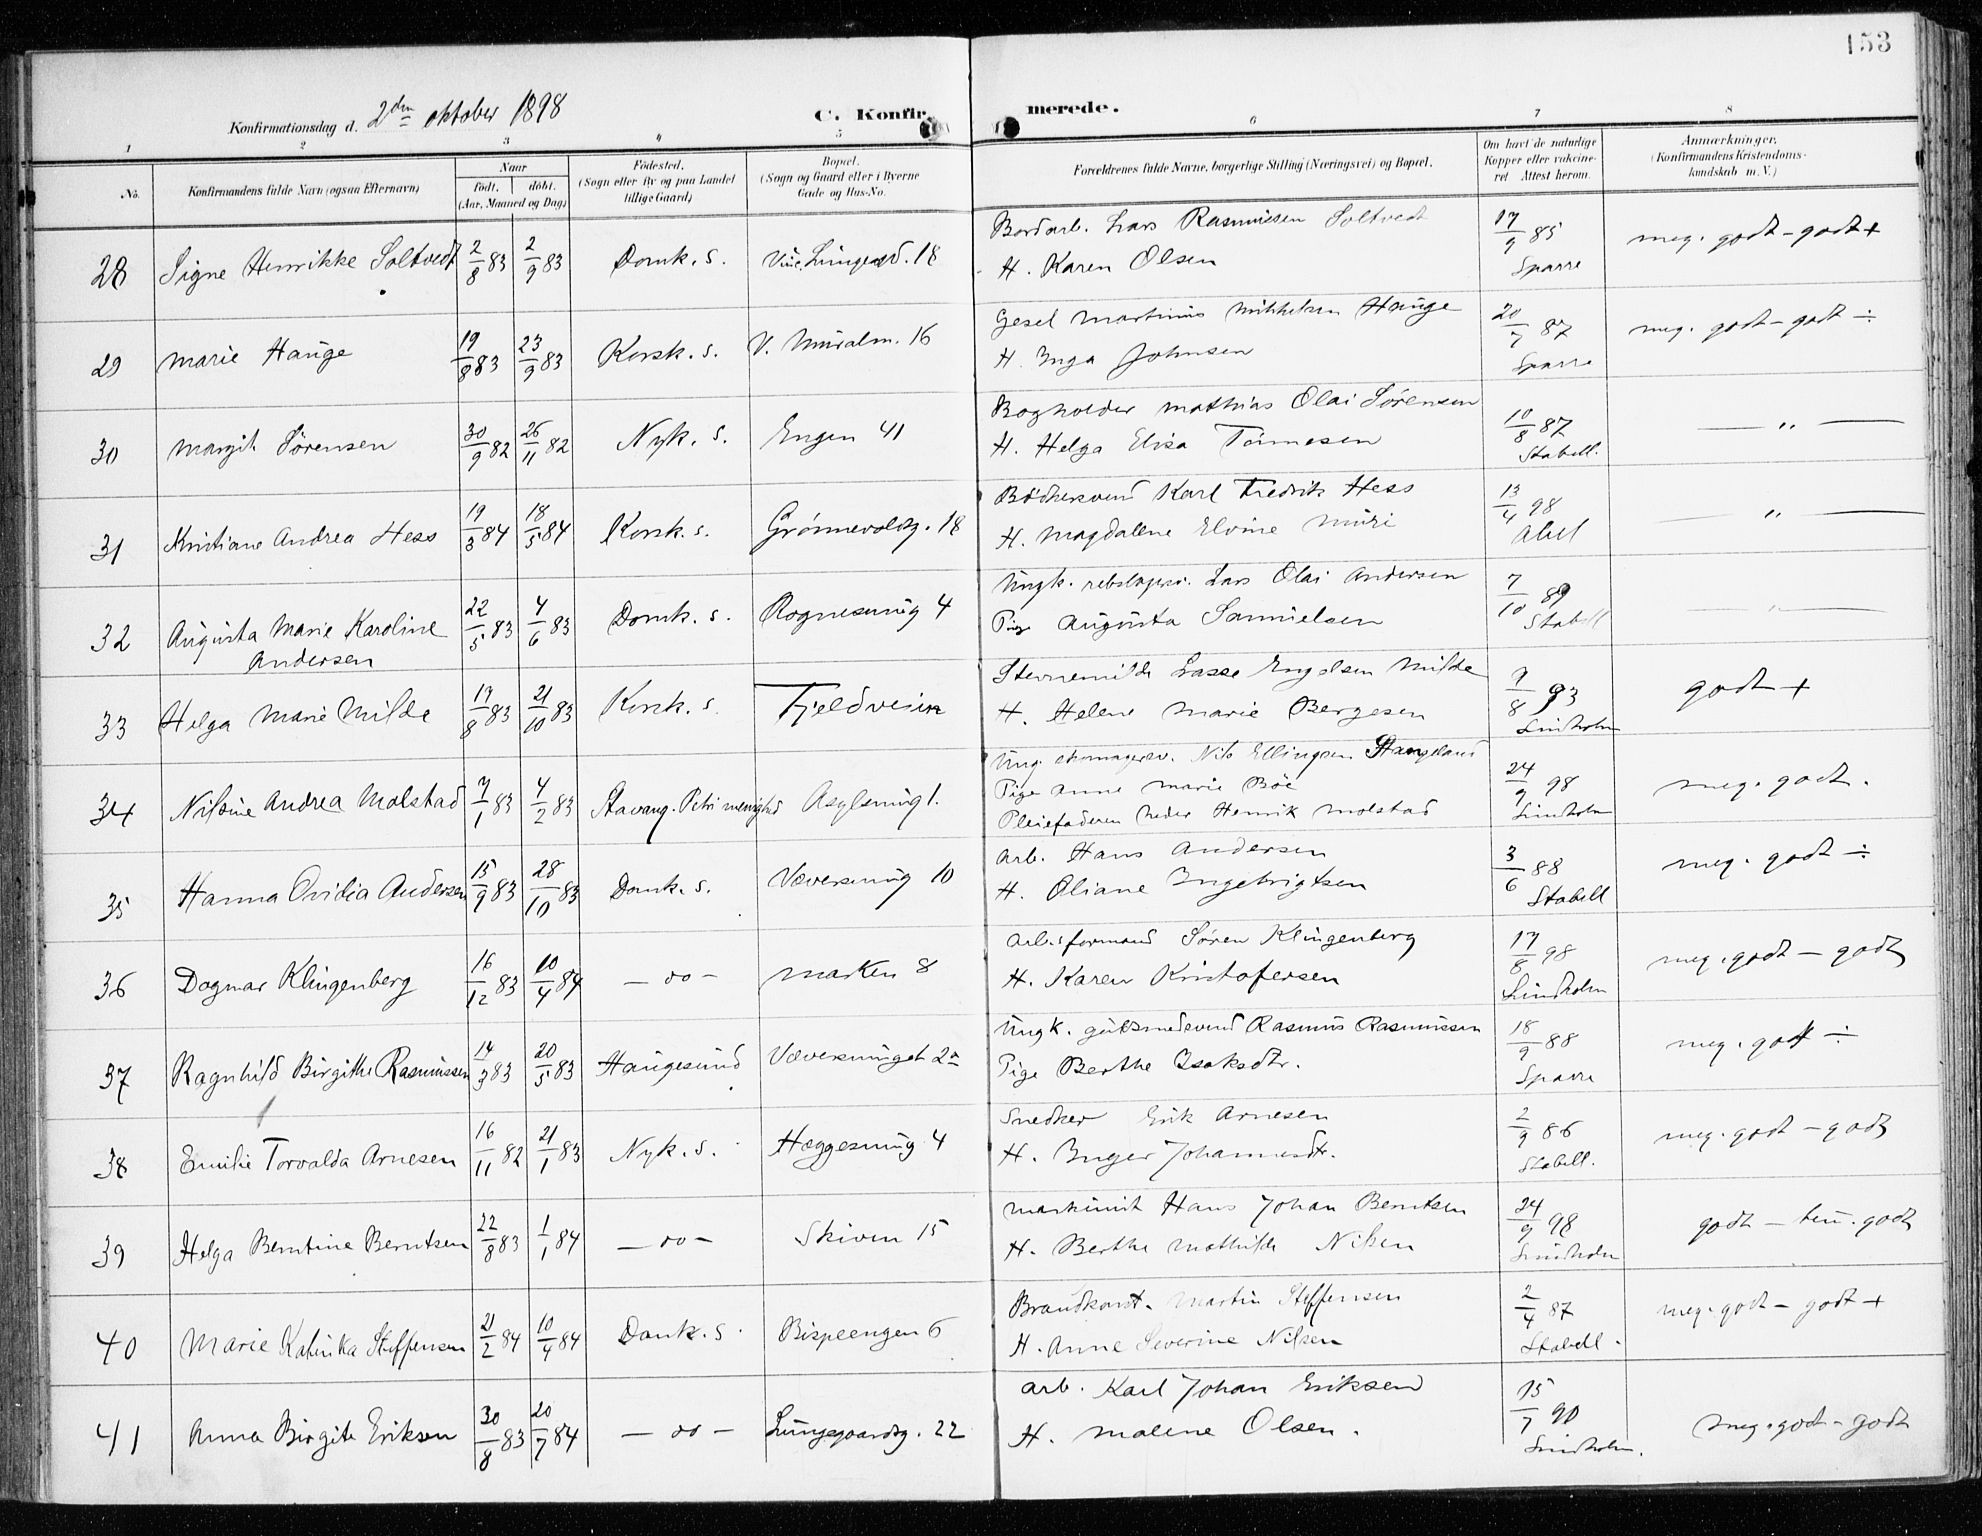 153
Konfirmationsdag d. 2den oktober 1898
C. Konfirmerede.
1 2 3 4 5 6 7 8
No. Konfirmandens fulde Navn (ogsaa Efternavn) Naar født. døbt. (Aar, Maaned og Dag) Fødested. (Sogn eller By og paa Landet tillige Gaard) Bopæl. (Sogn og Gaard eller i Byerne Gade og Hus-No. Forældrenes fulde Navne, borgerlige Stilling (Næringsvei) og Bopæl. Om havt de naturlige Kopper eller vakcineret Attest herom. Anmærkninger. (Konfirmandens Kristendomskundskab m. V.)
28 Signe Henrikke Soltvedt 2/8 83 2/9 83 Domk. s. Lungegd. 18 Bordarb. Lars Rasmussen Soltvedt
H. Karen Olsen 17/9 85 Sparre meg. godt - godt +
29 Marie Hauge 19/8 83 23/9 83 Korsk. s. V. Muralm. 16 Gesel Martinus Mikkelsen Hauge
H. Inga Johnsen 20/7 87 Sparre meg. godt - godt ÷
30 Margit Sørensen 30/9 82 26/11 82 Nyk. s. Engen 41 Bogholder Mathias Olai Sørensen
H. Helga Elisa Tønnesen 10/8 87 Stabell. — " —
31 Kristiane Andrea Hess 19/3 84 18/5 84 Korsk. s. Grønnevoldsg. 18 Bødkersvend Karl Fredrik Hess
H. Magdalene Elvine Muri 13/4 98 Abel — " —
32 Augusta Marie Karoline Andersen 22/5 83 4/6 83 Domk. s. Rognesmug 4 Ungk. rebslagersv. Lars Olai Andersen
Pige Augusta Samuelsen 7/10 89 Stabell — " —
33 Helga Marie Milde 19/8 83 21/10 83 Korsk. s. Fjeldveien Lasse Engelsen Milde
H. Helene Marie Bergesen 9/8 93 Lindholm godt +
34 Nilsine Andrea Molstad 7/1 83 4/2 83 Stavang. Petri menighed Asylsmug 1. Ung. skomagersv. Nils Ellingsen Stangeland
Pige Anne Marie Böe
Pleiefaderen Peder Henrik Molstad 24/9 98 Lindholm meg. godt.
35 Hanna Ovidia Andersen 15/9 83 28/10 83 Domk. s. Væversmug 10 Arb. Hans Andersen
H. Oliane Ingebrigtsen 3/6 88 Stabell meg. godt ÷
36 Dagnar Klingenberg 16/12 83 10/4 84 — oo — Marken 8 Arb.sformand Søren Klingenberg
H. Karen Kristofersen 17/8 98 Lindholm meg. godt - godt
37 Ragnhild Birgithe Rasmussen 14/3 83 20/5 83 Haugesund Væversmuget 2a Ungk. guldsmedsvend Rasmus Rasmussen
Pige Berthe Isaksdtr. 18/9 88 Sparre meg. godt ÷
38 Emilie Torvalda Arnesen 16/11 82 21/1 83 Nyk. s. Heggesmug 4 Snedker Erik Arnesen
H. Inger Johannesdtr. 2/9 86 Stabell. meg. godt - godt
39 Helga Berntine Berntsen 22/8 83 1/1 84 — oo — Skiven 15 Hans Johan Berntsen
H. Berthe Mathilde Nilsen 24/9 98 Lindholm godt - tem. godt
40 Marie Katinka Steffensen 21/2 84 10/4 84 Domk. s. Bispeengen 6 Brandkonst. Martin Steffensen
H. Anne Severine Nilsen 2/4 87 Stabell. meg. godt - godt +
41 Anna Birgite Eriksen 30/8 83 20/7 84 — oo — Lungegaardsg. 22 Arb. Karl Johan Eriksen
H. Malene Olsen. 15/7 90 Lindholm. meg. godt - godt